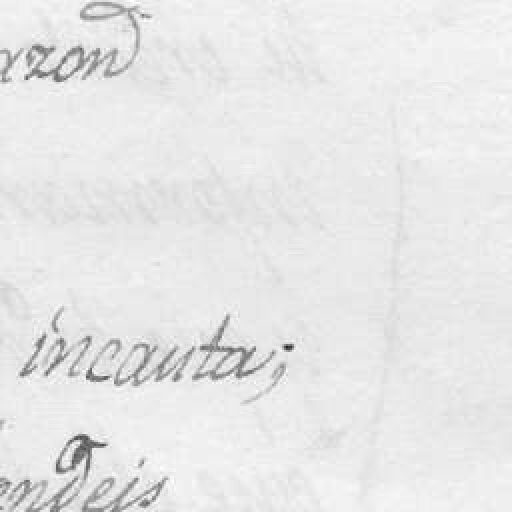 azon
incauta;
endeis